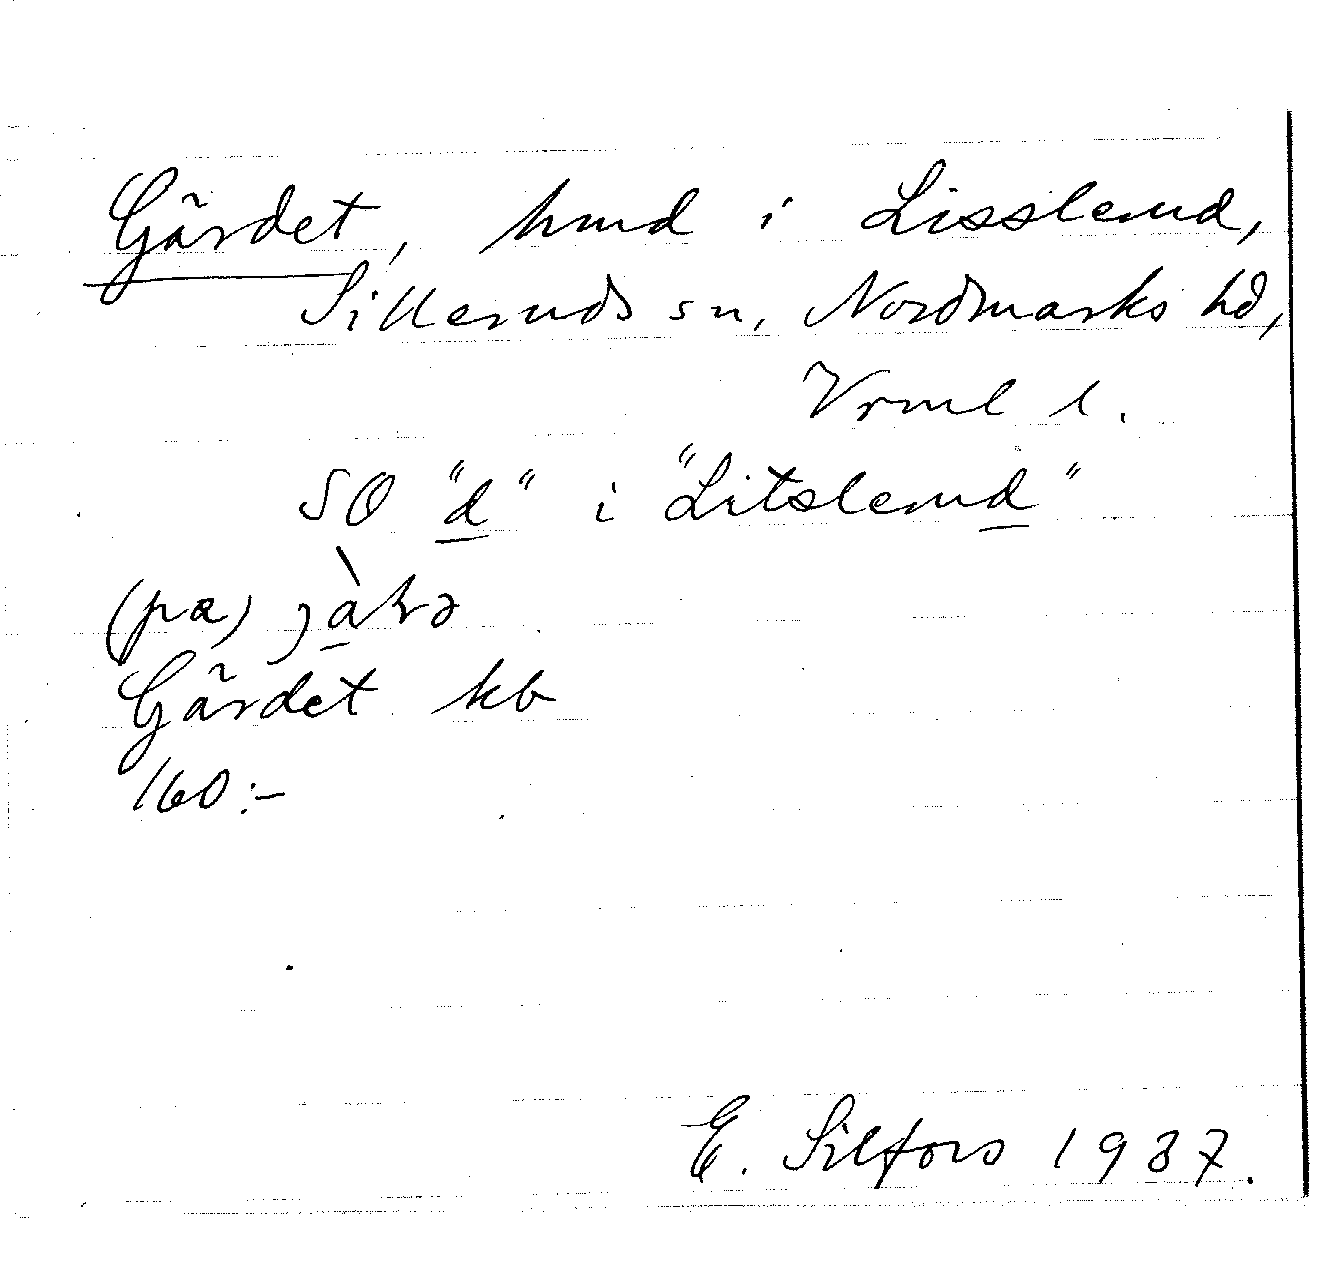 Gärdet, hmd i Lisslerud,
Silleruds sn, Nordmarks hd,
Vrml l.
SO "d" i "Litslerud"
(pa)
Gärdet kb
160:-
E. Silfors 1937.